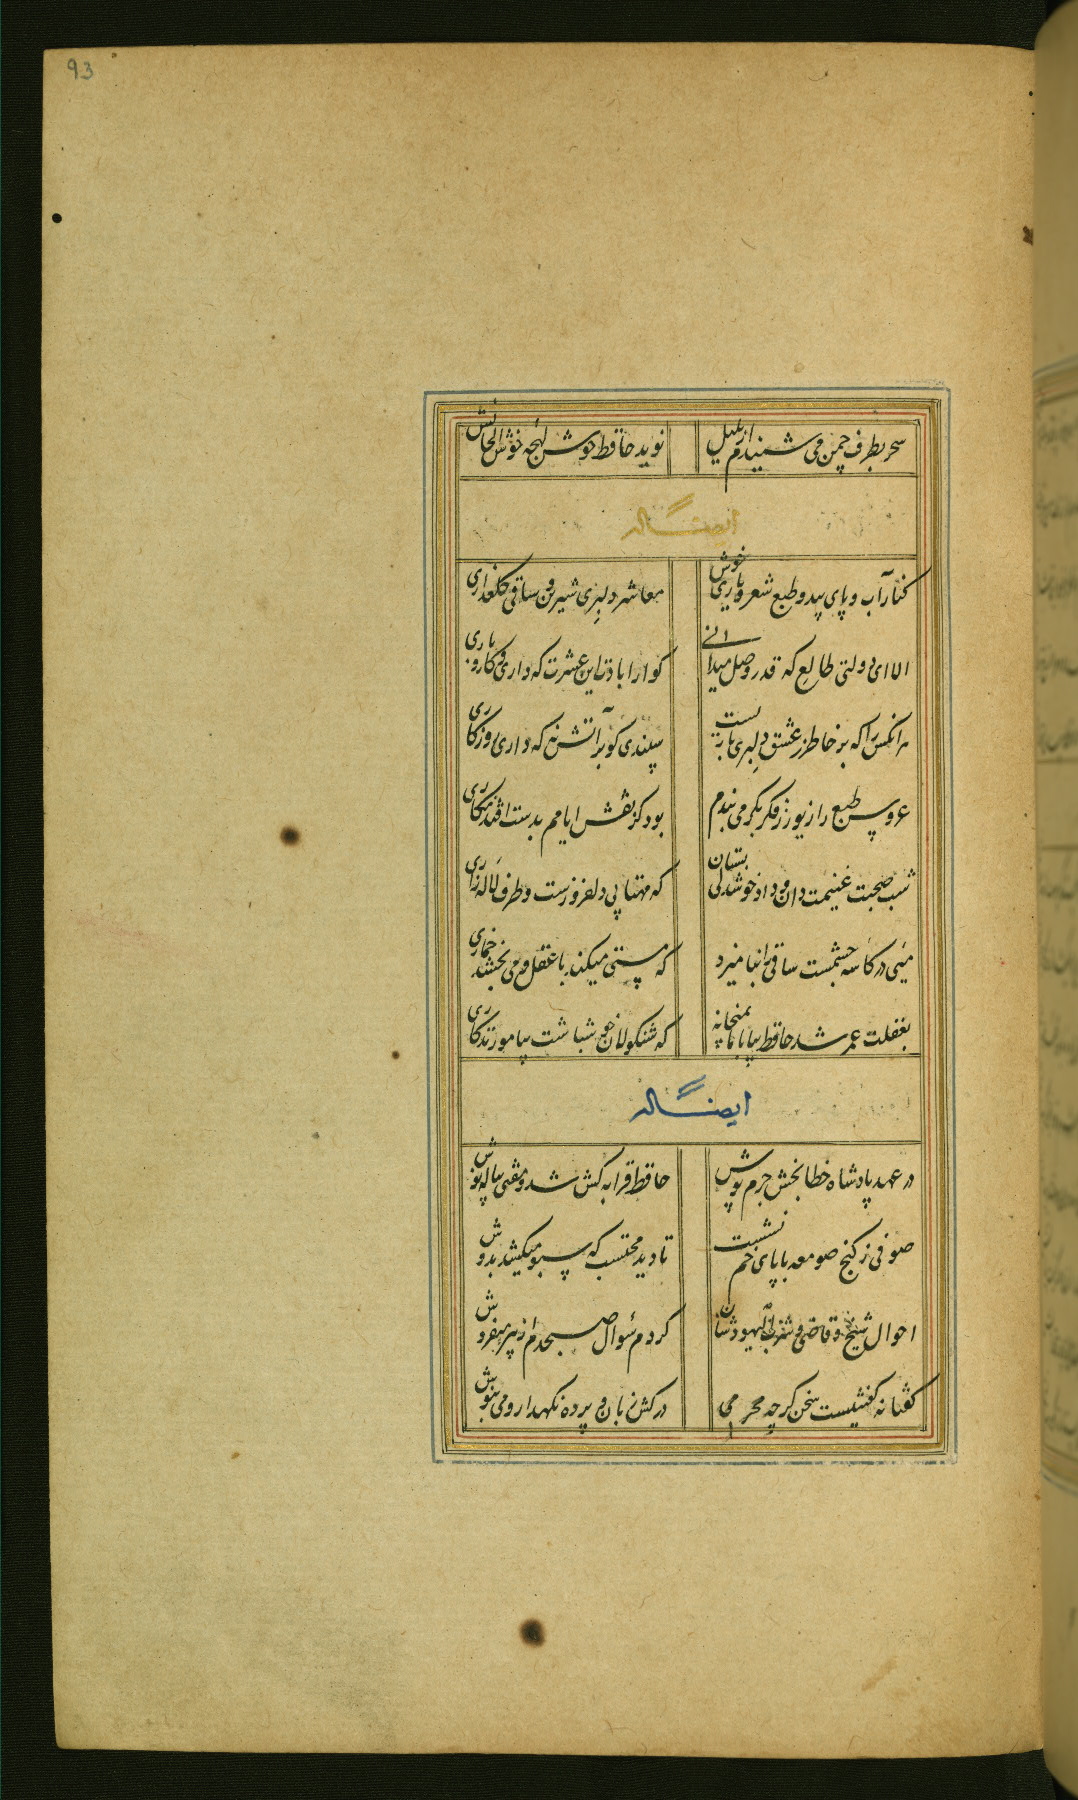 93
سحر بطرف چمن می شنیدم از بلبل نوید حافظ خوش لهجه خوش الحانش
ایضاً له
کنار آب و پای بید و طبع شعر و یاری خوش معاشر دلبری شیرین و ساقی گلعذاری
الا ای دولتی طالع که قدر وصل میدانی گوارا بادت این عشرت که داری و کاروباری
هر انکس را که بر خاطر ز عشق دلبری باریست سپندی کو بر آتش نه که داری روزکاری
عروس طبع را زیور ز فکر بکر می بندم بود کز نقش ایامم بدست افتد نکاری
شب صحبت غنیمت دان و داد خوشدلی بستان که مهتابی دلفروزست و طرف لاله زاری
مئی در کاسه چشمست ساقی را نبامیزد که مستی میکند با عقل و می بخشد خماری
بغفلت عمر شد حافظ بیا با ما بمیخانه که شنکولان خوش باشت بیاموزند کاری
ایضاً له
در عهد پادشاه خطابخش جرم پوش حافظ قرابه کش شد و مفتی پیاله نوش
صوفی ز کنج صومعه با پای خم نشست تا دید محتسب که سبو میکشد بدوش
احوال شیخ و قاضی و شرب الیهودشان کردم سؤال صبحدم از پیر میفروش
گفتا نه گفتنیست سخن کرچه محرمی درکش زبان و پرده نکهدار و می بنوش